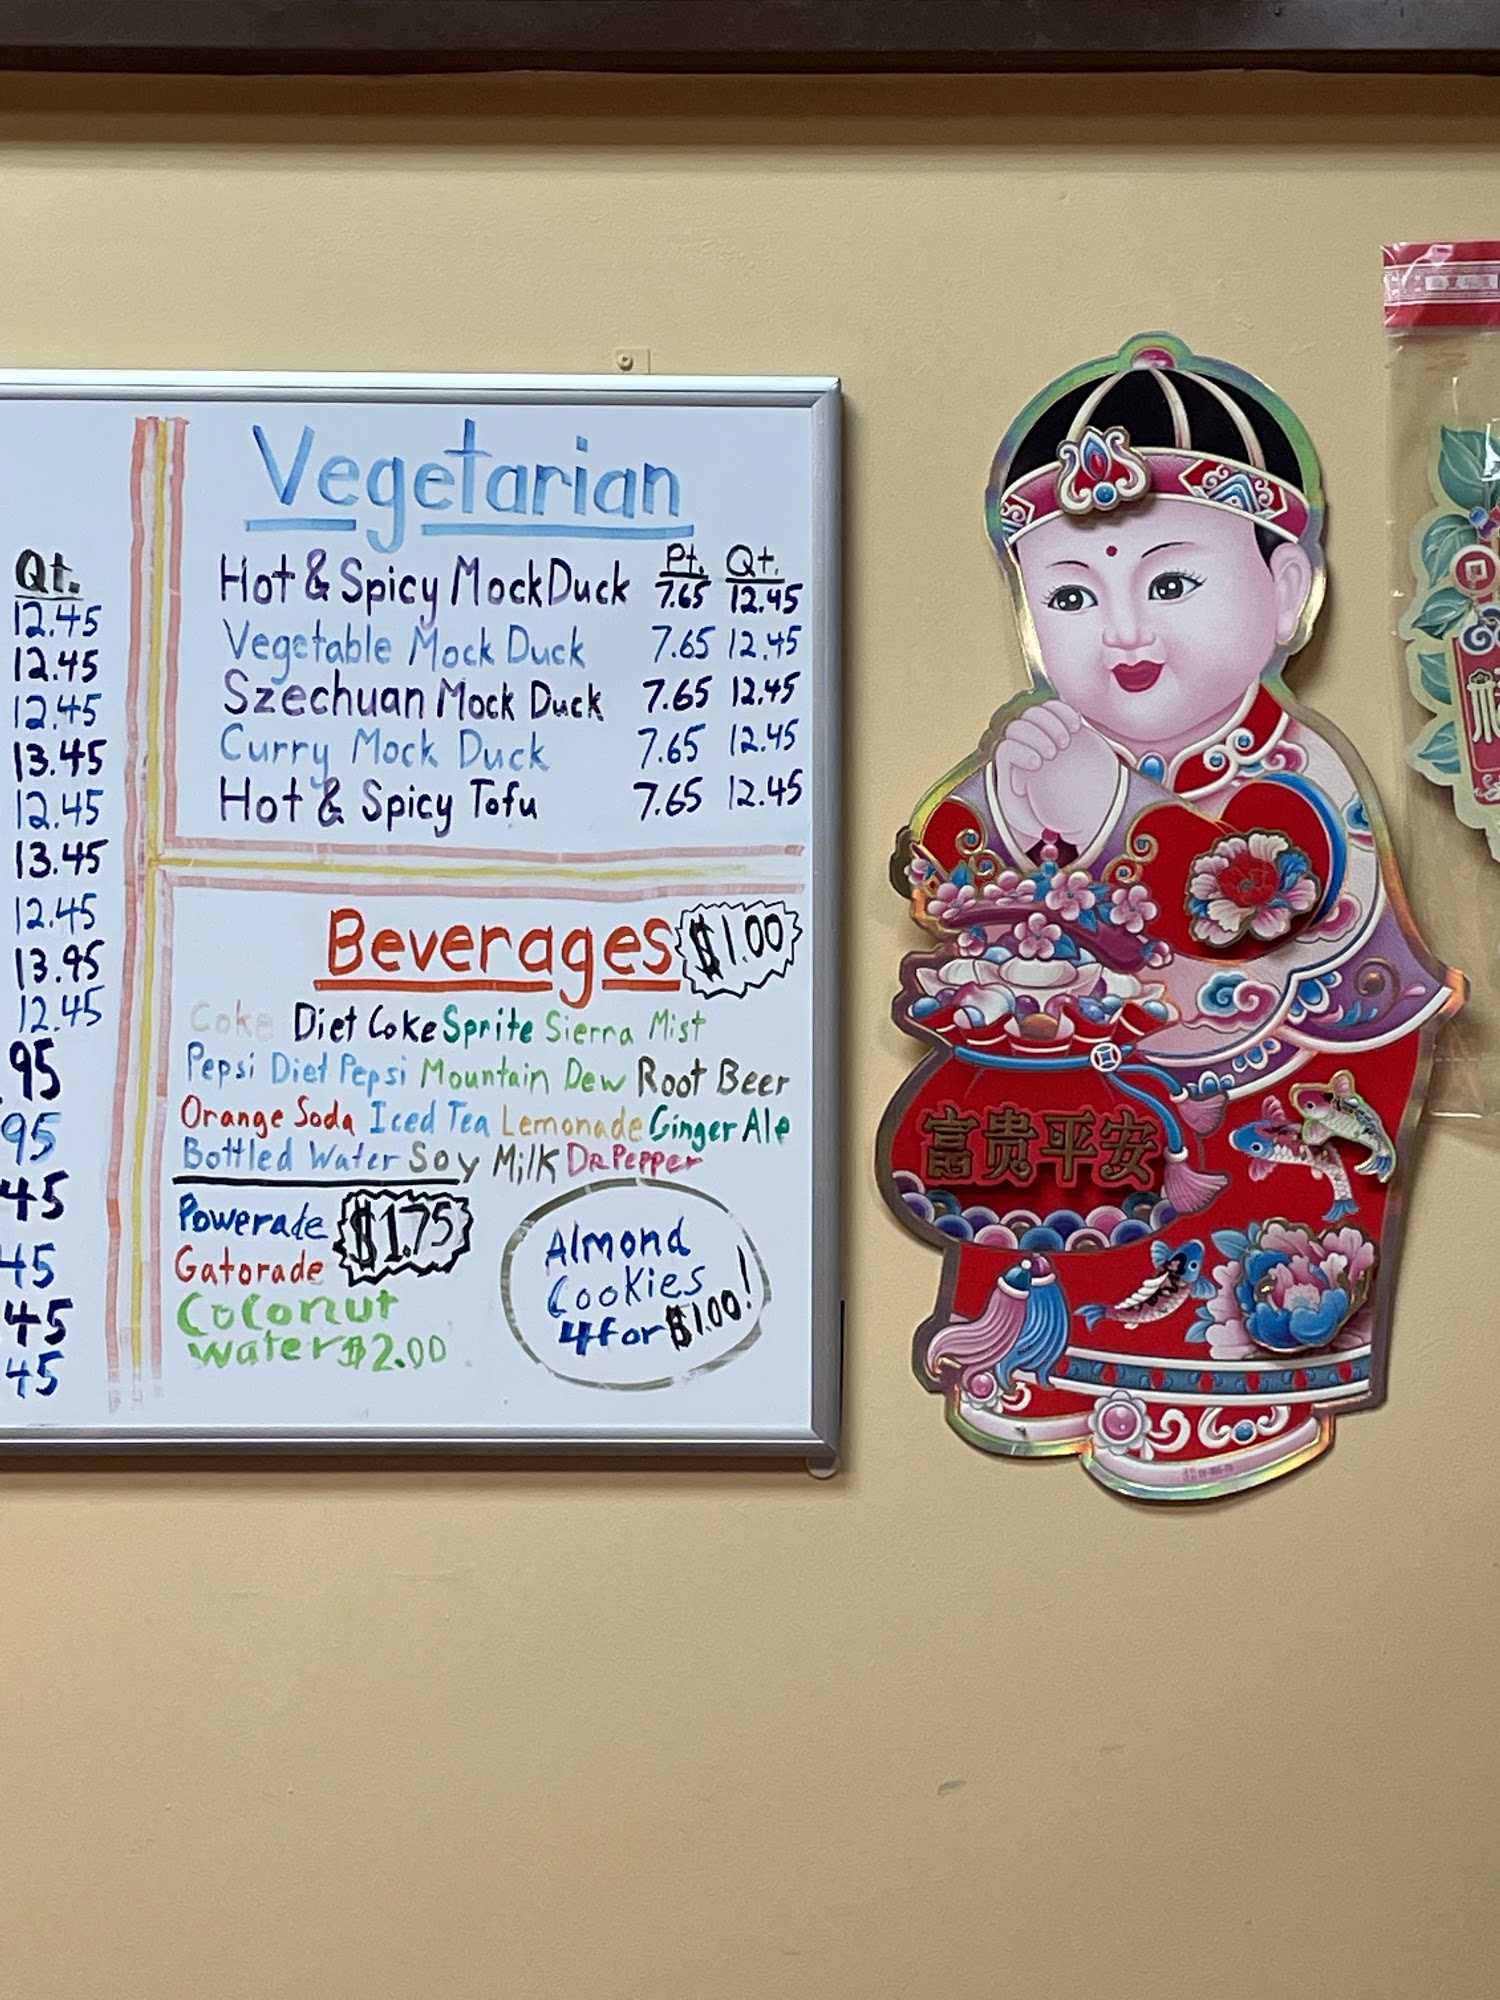 Qt.
12.45
12.45
12.45
13.45
12.45
13.45
12.45
13.95
12.45
.95
95
45
45
45
45
Vegetarian
Pt. Qt.
Hot & Spicy Mock Duck 7.65 12.45
Vegetable Mock Duck 7.65 12.45
Szechuan Mock Duck 7.65 12.45
Curry Mock Duck 7.65 12.45
Hot & Spicy Tofu 7.65 12.45
Beverages $1.00
Coke Diet Coke Sprite Sierra Mist
Pepsi Diet Pepsi Mountain Dew Root Beer
Orange Soda Iced Tea Lemonade Ginger Ale
Bottled Water Soy Milk Dr Pepper
Powerade $1.75
Gatorade
Coconut
water $2.00
Almond
Cookies
4 for $1.00!
富贵平安